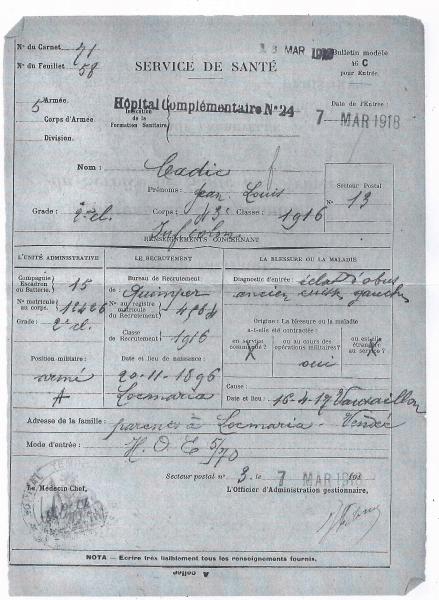 N° du Carnet 71
13 MAR 1918
Bulletin modèle
46 C
pour Entrée.
N° du Feuillet 58
SERVICE DE SANTÉ
5 Armée.
Corps d'Armée
Division.
Indication
de la
Formation Sanitaire
Hôpital Complémentaire N° 24
Date de l'Entrée :
7 MAR 1918
Nom : Cadic
Prénoms : Jean Louis
Secteur Postal
N° 13
Grade : 2e cl. Corps : 43e Classe : 1916
Inf coln
RENSEIGNEMENTS CONCERNANT
L'UNITÉ ADMINISTRATIVE
Compagnie
Escadron
ou Batterie. 15
N° matricule
au corps. 12426
Grade : 2e cl.
Position militaire:
armé
A
LE RECRUTEMENT
Bureau de Recrutement
de : Quimper
N° au registre
matricule
du Recrutement
Classe
de Recrutement 1916
Date et lieu de naissance :
20-11-1896
Locmaria
LA BLESSURE OU LA MALADIE
Diagnostic d'entrée : éclat d'obus
ancien cuisse gauche
Origine : La blessure ou la maladie
a-t-elle été contractée :
en service
commandé ?
ou au cours des
opérations militaires ?
ou est-elle
étrangère
au service ?
oui
Cause :
Date et lieu : 16-4-17 Vauxaillon
Adresse de la famille : parents à Locmaria - Vendée
Mode d'entrée : H.O.E 5/70
Secteur postal n° 3, le 7 MAR 191
Le Médecin-Chef,
L'Officier d'Administration gestionnaire,
NOTA — Écrire très lisiblement tous les renseignements fournis.
A coller